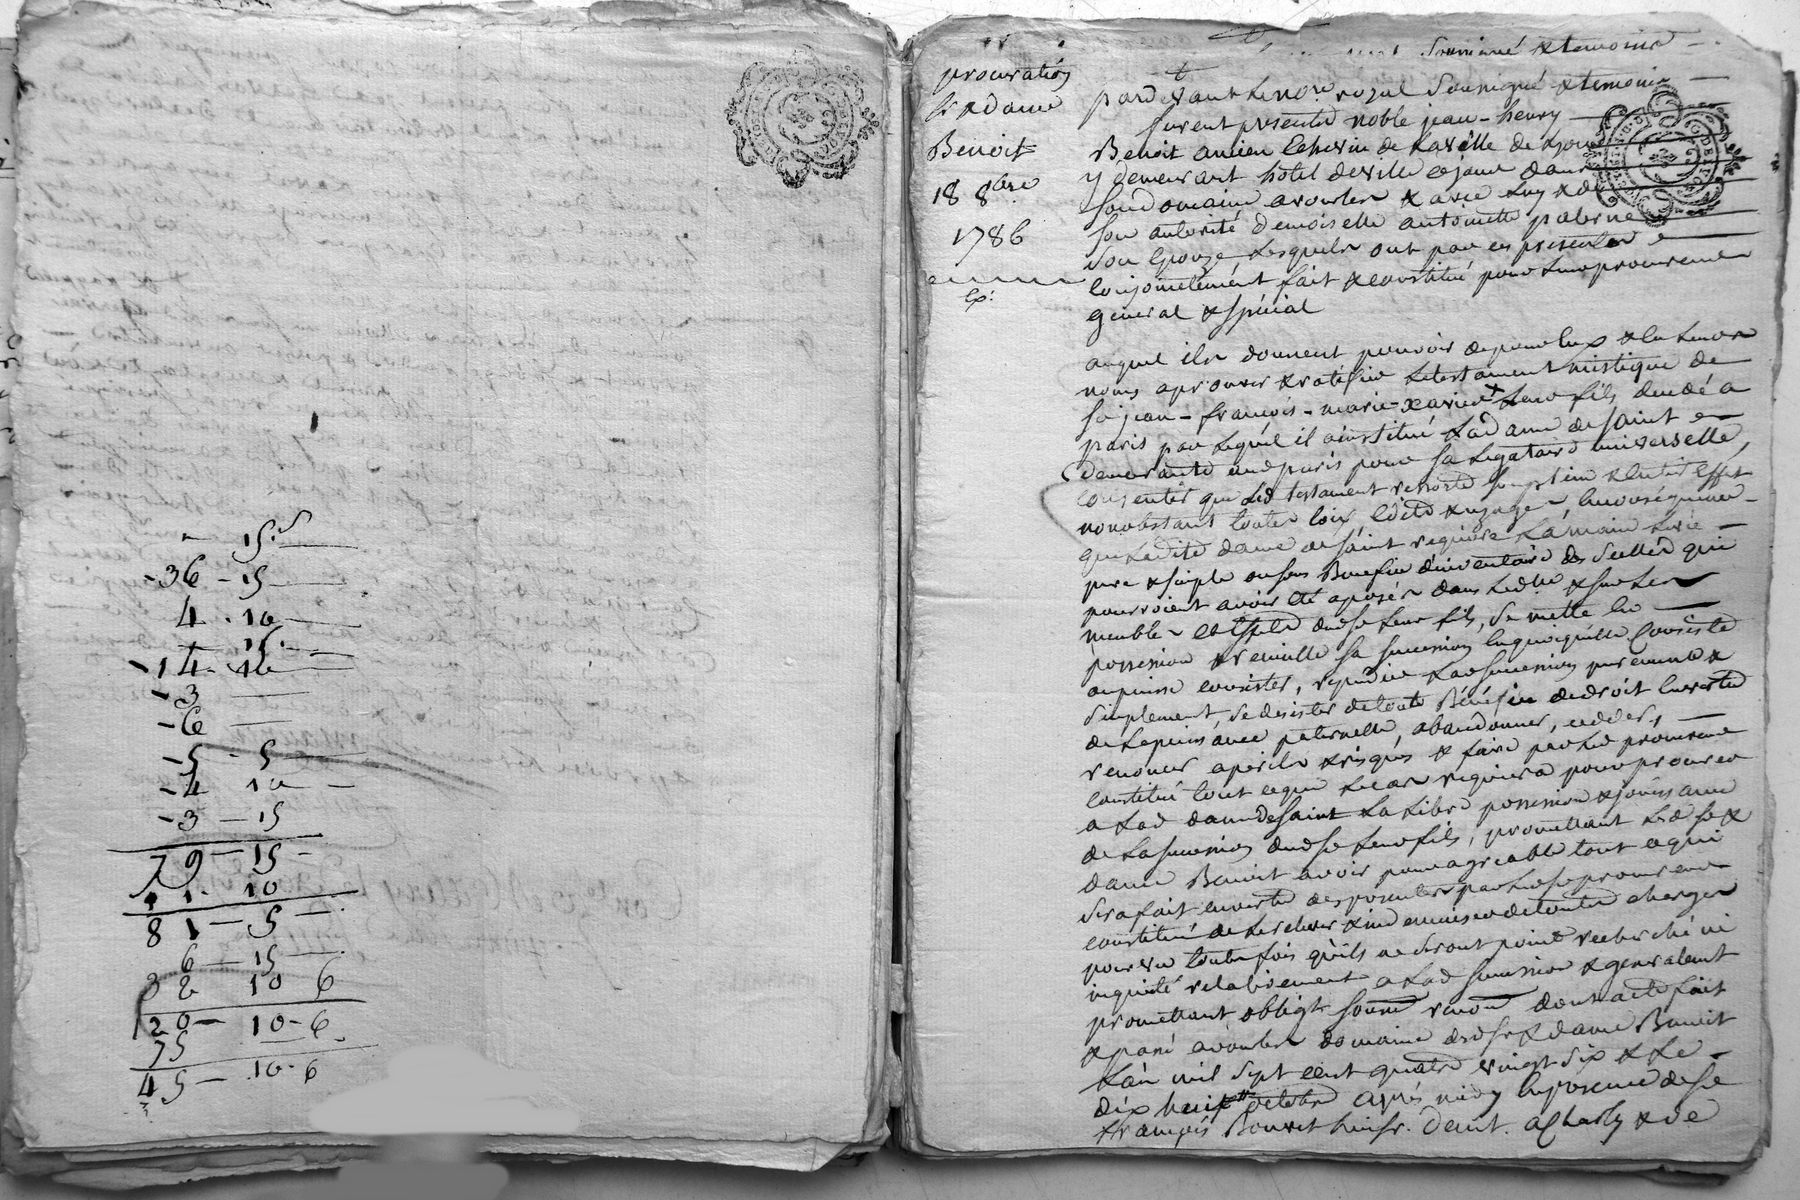 15 s
- 36 - 15
4 . 10
15
- 14 - 10
- 3
- 6
- 5 - 5
- 4 10 -
- 3 - 15
79 - 15 -
1 . 10
81 - 5 -
6 - 15
32 10 6
120 - 10 - 6
75
45 - 10 - 6
procuration
Sr & dame
Benoit
18 8bre
1786
Ex:
soussigné & temoins
pardevant le nore royal soussigné & temoins
furent presents noble jean - henry
Benoit ancien Echevin de la ville de Lyon
y demeurant hotel deville ce jour dans
son domaine a vourles & avec luy & de
son autorité demoiselle antoinette paterne
son Epouze Lesquels ont par ces presentes
conjointement fait & constitué pour leur procureur
general & spécial
auquel ils donnent pouvoir de pour eux & en leurs
noms aprouver & ratifier le testament mistique de
Sr jean - françois - marie - xavier leur fils decedé a
paris par lequel il a institué lad dame de saint
demeurante aud paris pour sa legataire universelle,
consentir que led testament ressorte son plein & entier effet
nonobstant toutes loix, edits & usages, en conséquence
que ladite dame de saint requiere la main levée
pure & simple ou sous Benefice d'inventaire des scellés qui
pourroient avoir été aposés dans led & sur les
meubles & effets dud Sr leur fils, se mette en
possession & recueille sa succession en quoi qu'elle consiste
ou puisse consister, repudier lad succession purement &
simplement, se desister de toute Bénéfice de droit en vertu
de la puissance paternelle, abandonner, ceder,
renoncer a perils & risques & faire par led procureur
constitué tout ce que le cas requiera pour procurer
a lad dame de saint la libre possession & jouissance
de la succession dud Sr leur fils, promettant led Sr &
dame Benoit avoir pour agreable tout ce qui
sera fait en vertu des presentes par led Sr procureur
constitué de le relever & indemniser de toutes charges
pourvu toutefois qu'ils ne seront point recherché ni
inquieté relativement a lad succession & generalement
promettant obligt soumt renont dont acte fait
& passé a vourles domaine desd Sr & dame Benoit
l'an mil sept cent quatre vingt six & le
dix huit octobre après midy en presence de Sr
françois Bouvet huissr. demt. a Charly & de